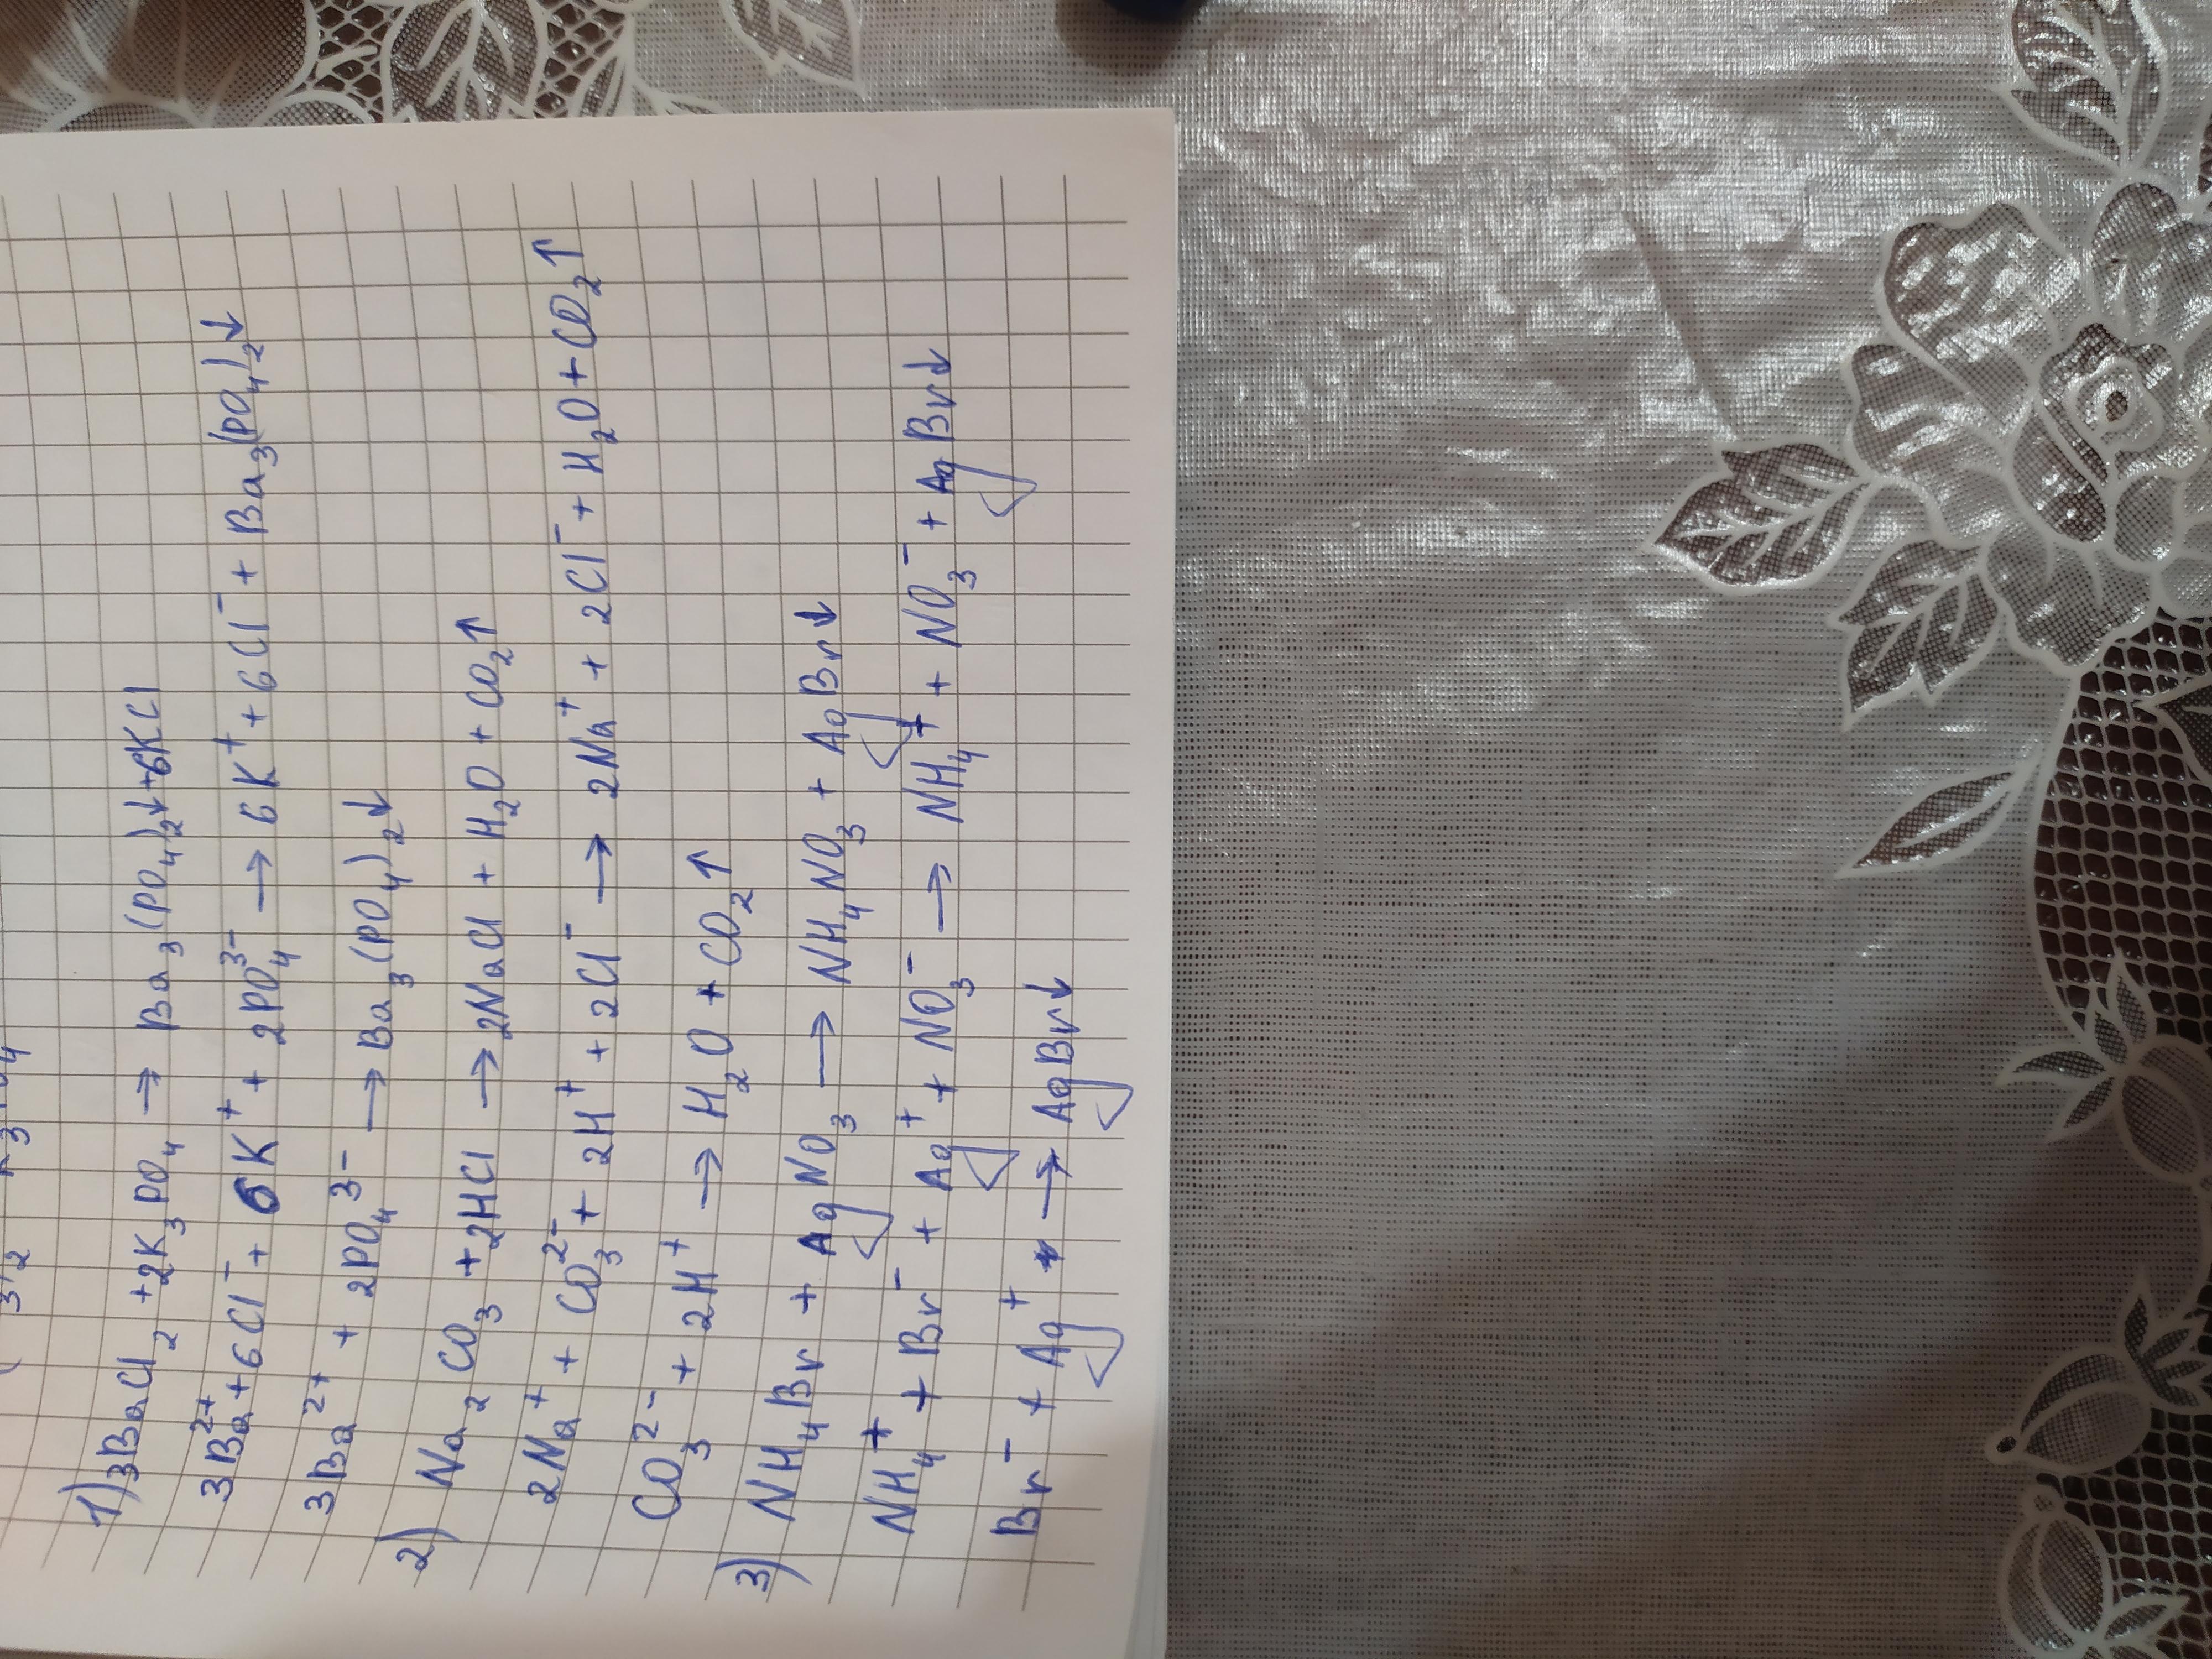 1) 3BaCl₂ + 2K₃PO₄ → Ba₃(PO₄)₂↓ + 6KCl
3Ba²⁺ + 6Cl⁻ + 6K⁺ + 2PO₄³⁻ → 6K⁺ + 6Cl⁻ + Ba₃(PO₄)₂↓
3Ba²⁺ + 2PO₄³⁻ → Ba₃(PO₄)₂↓
2) Na₂CO₃ + 2HCl → 2NaCl + H₂O + CO₂↑
2Na⁺ + CO₃²⁻ + 2H⁺ + 2Cl⁻ → 2Na⁺ + 2Cl⁻ + H₂O + CO₂↑
CO₃²⁻ + 2H⁺ → H₂O + CO₂↑
3) NH₄Br + AgNO₃ → NH₄NO₃ + AgBr↓
NH₄⁺ + Br⁻ + Ag⁺ + NO₃⁻ → NH₄⁺ + NO₃⁻ + AgBr↓
Br⁻ + Ag⁺ → AgBr↓